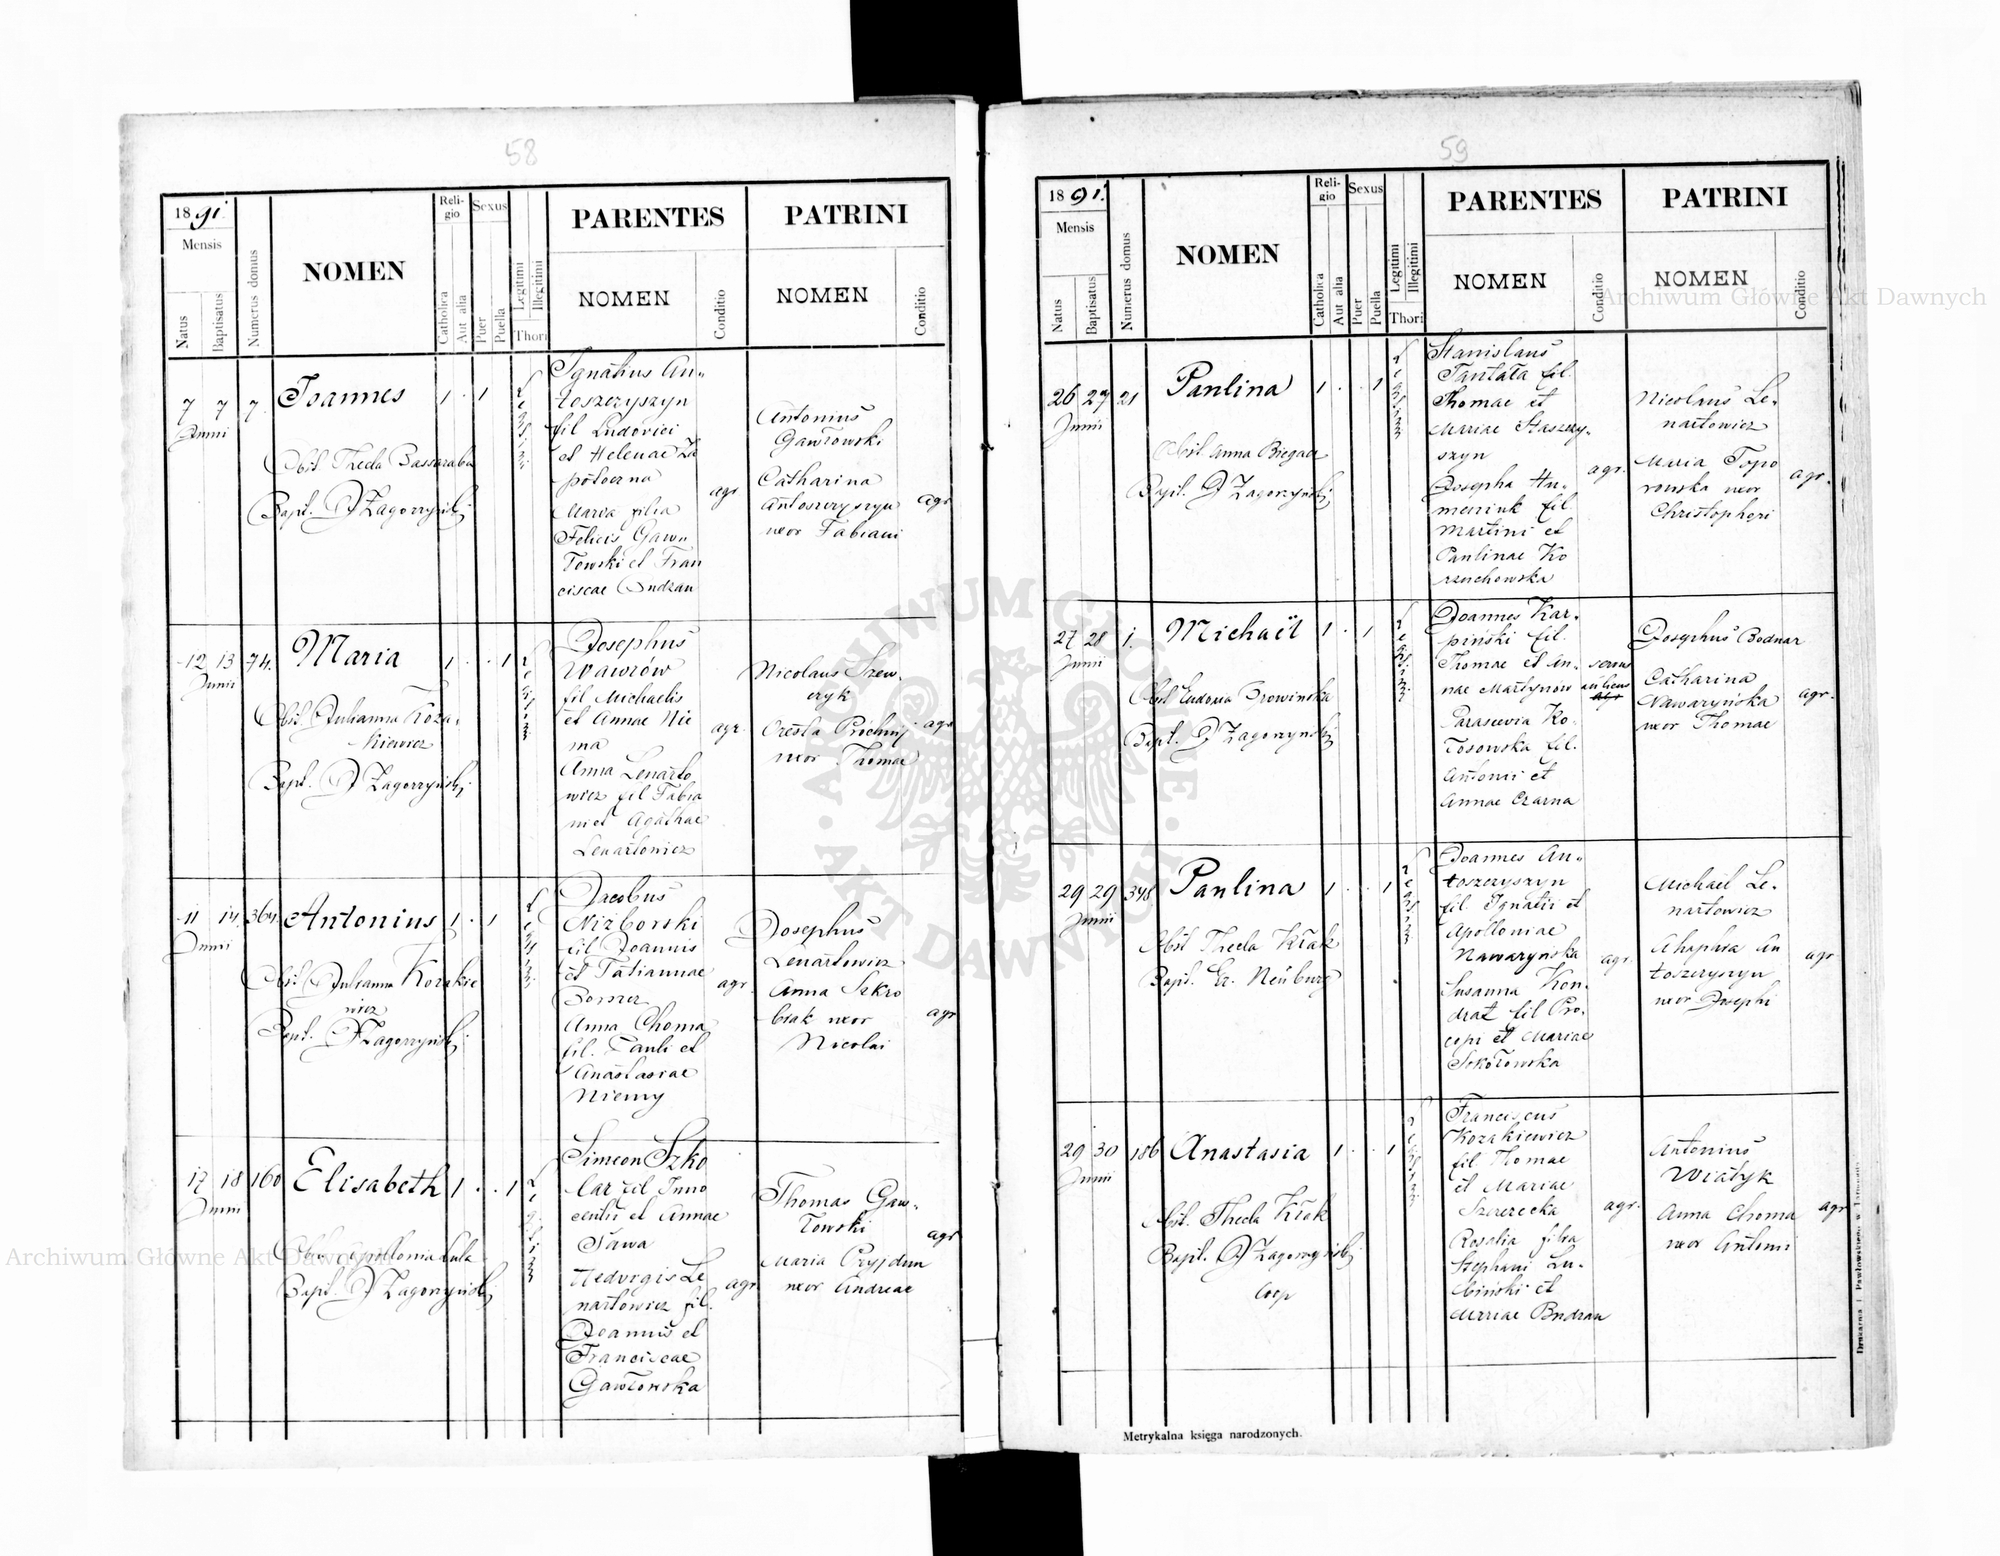 58
1891.
Mensis
Natus
Baptisatus
Numerus domus
NOMEN
Religio
Catholica
Aut alia
Sexus
Puer
Puella
Legitimi
Illegitimi
Thori
PARENTES
NOMEN
Conditio
PATRINI
NOMEN
Conditio
7 7 7.
Junii
Joannes
1 . 1
Obst Thecla Bassaraba
Bapt. J Zagorzyński
Ignatius An-
toszczyszyn
fil Ludovici
et Helenae Za
potoczna
Maria filia
Felicis Gaw-
łowski et Fran
ciscae Budzan
agr
Antonius
Gawłowski
Catharina
Antoszczyszyn
uxor Fabiani
agr
12 13 74.
Junii
Maria
1 . . 1
Obst. Julianna Koza-
kiewicz
Bapt. J Zagorzyński
Josephus
Wawrów
fil Michaelis
et Annae Nie
ma
Anna Lenarto
wicz fil Fabia
ni et Agathae
Lenartowicz
agr.
Nicolaus Szew-
czyk
Oresta Próchnij
uxor Thomae
agr
11 14 364.
Junii
Antonius
1 . 1
Obst. Julianna Kozakie
wicz
Bapt. J Zagorzyński
Jacobus
Nizborski
fil Joannis
et Tatiannae
Borsez
Anna Choma
fil. Pauli et
Anastasiae
Niemy
agr.
Josephus
Lenartowicz
Anna Szkro
biak uxor
Nicolai
agr
17 18 160
Junii
Elisabeth
1 . . 1
Obst Apollonia Lula
Bapt. J Zagorzyński
Simeon Szko
lar fil Inno
centii et Annae
Sawa
Hedvigis Le
nartowicz fil.
Joannis et
Franciscae
Gawłowska
agr
Thomas Gaw-
łowski
Maria Pryjdun
uxor Andreae
agr
59
1891.
Mensis
Natus
Baptisatus
Numerus domus
NOMEN
Religio
Catholica
Aut alia
Sexus
Puer
Puella
Legitimi
Illegitimi
Thori
PARENTES
NOMEN
Conditio
PATRINI
NOMEN
Conditio
26 27 21
Junii
Paulina
1 . . 1
Obst Anna Biegan
Bapt. J Zagorzyński
Stanislaus
Tantała fil.
Thomae et
Mariae Staszczy-
szyn
Josepha Hu-
meniuk fil.
Martini et
Paulinae Ko
rzuchowska
agr.
Nicolaus Le-
nartowicz
Maria Topo
rowska uxor
Christophori
agr.
27 28 1.
Junii
Michaël
1 . 1
Obst Eudoxia Browinska
Bapt. J Zagorzyński
Joannes Kar-
piński fil.
Thomae et An-
nae Martynów
Parascevia Ko-
łosowska fil.
Antonii et
Annae Czarna
servus
aulicus
Josephus Bodnar
Catharina
Nawaryńska
uxor Thomae
agr.
29 29 348
Junii
Paulina
1 . . 1
Obst Thecla Kłak
Bapt. Er. Neüburg
Joannes An-
toszczyszyn
fil. Ignatii et
Apolloniae
Nawaryńska
Susanna Kon-
drat fil Pro-
copi et Mariae
Sokołowska
agr.
Michaël Le-
nartowicz
Ahaphia An
toszczyszyn
uxor Josephi
agr
29 30 186
Junii
Anastasia
1 . . 1
Obst. Thecla Kłak
Bapt. J Zagorzyński
Coop
Franciscus
Kozakiewicz
fil Thomae
et Mariae
Szczezecka
Rosalia filia
Stephani Lu-
biński et
Mariae Budzan
agr.
Antonius
Wiatyk
Anna Choma
uxor Antoni
agr
Metrykalna księga narodzonych.
Drukarnia J. Pawłowskiego w Tarnopolu
Archiwum Główne Akt Dawnych
Archiwum Główne Akt Dawnych
ARCHIWUM GŁÓWNE
AKT DAWNYCH